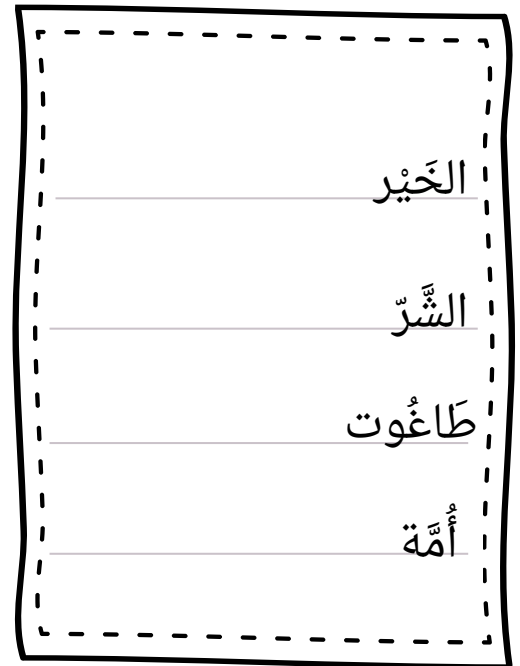 الخَيْر
الشَّرّ
طَاغُوت
أُمَّة